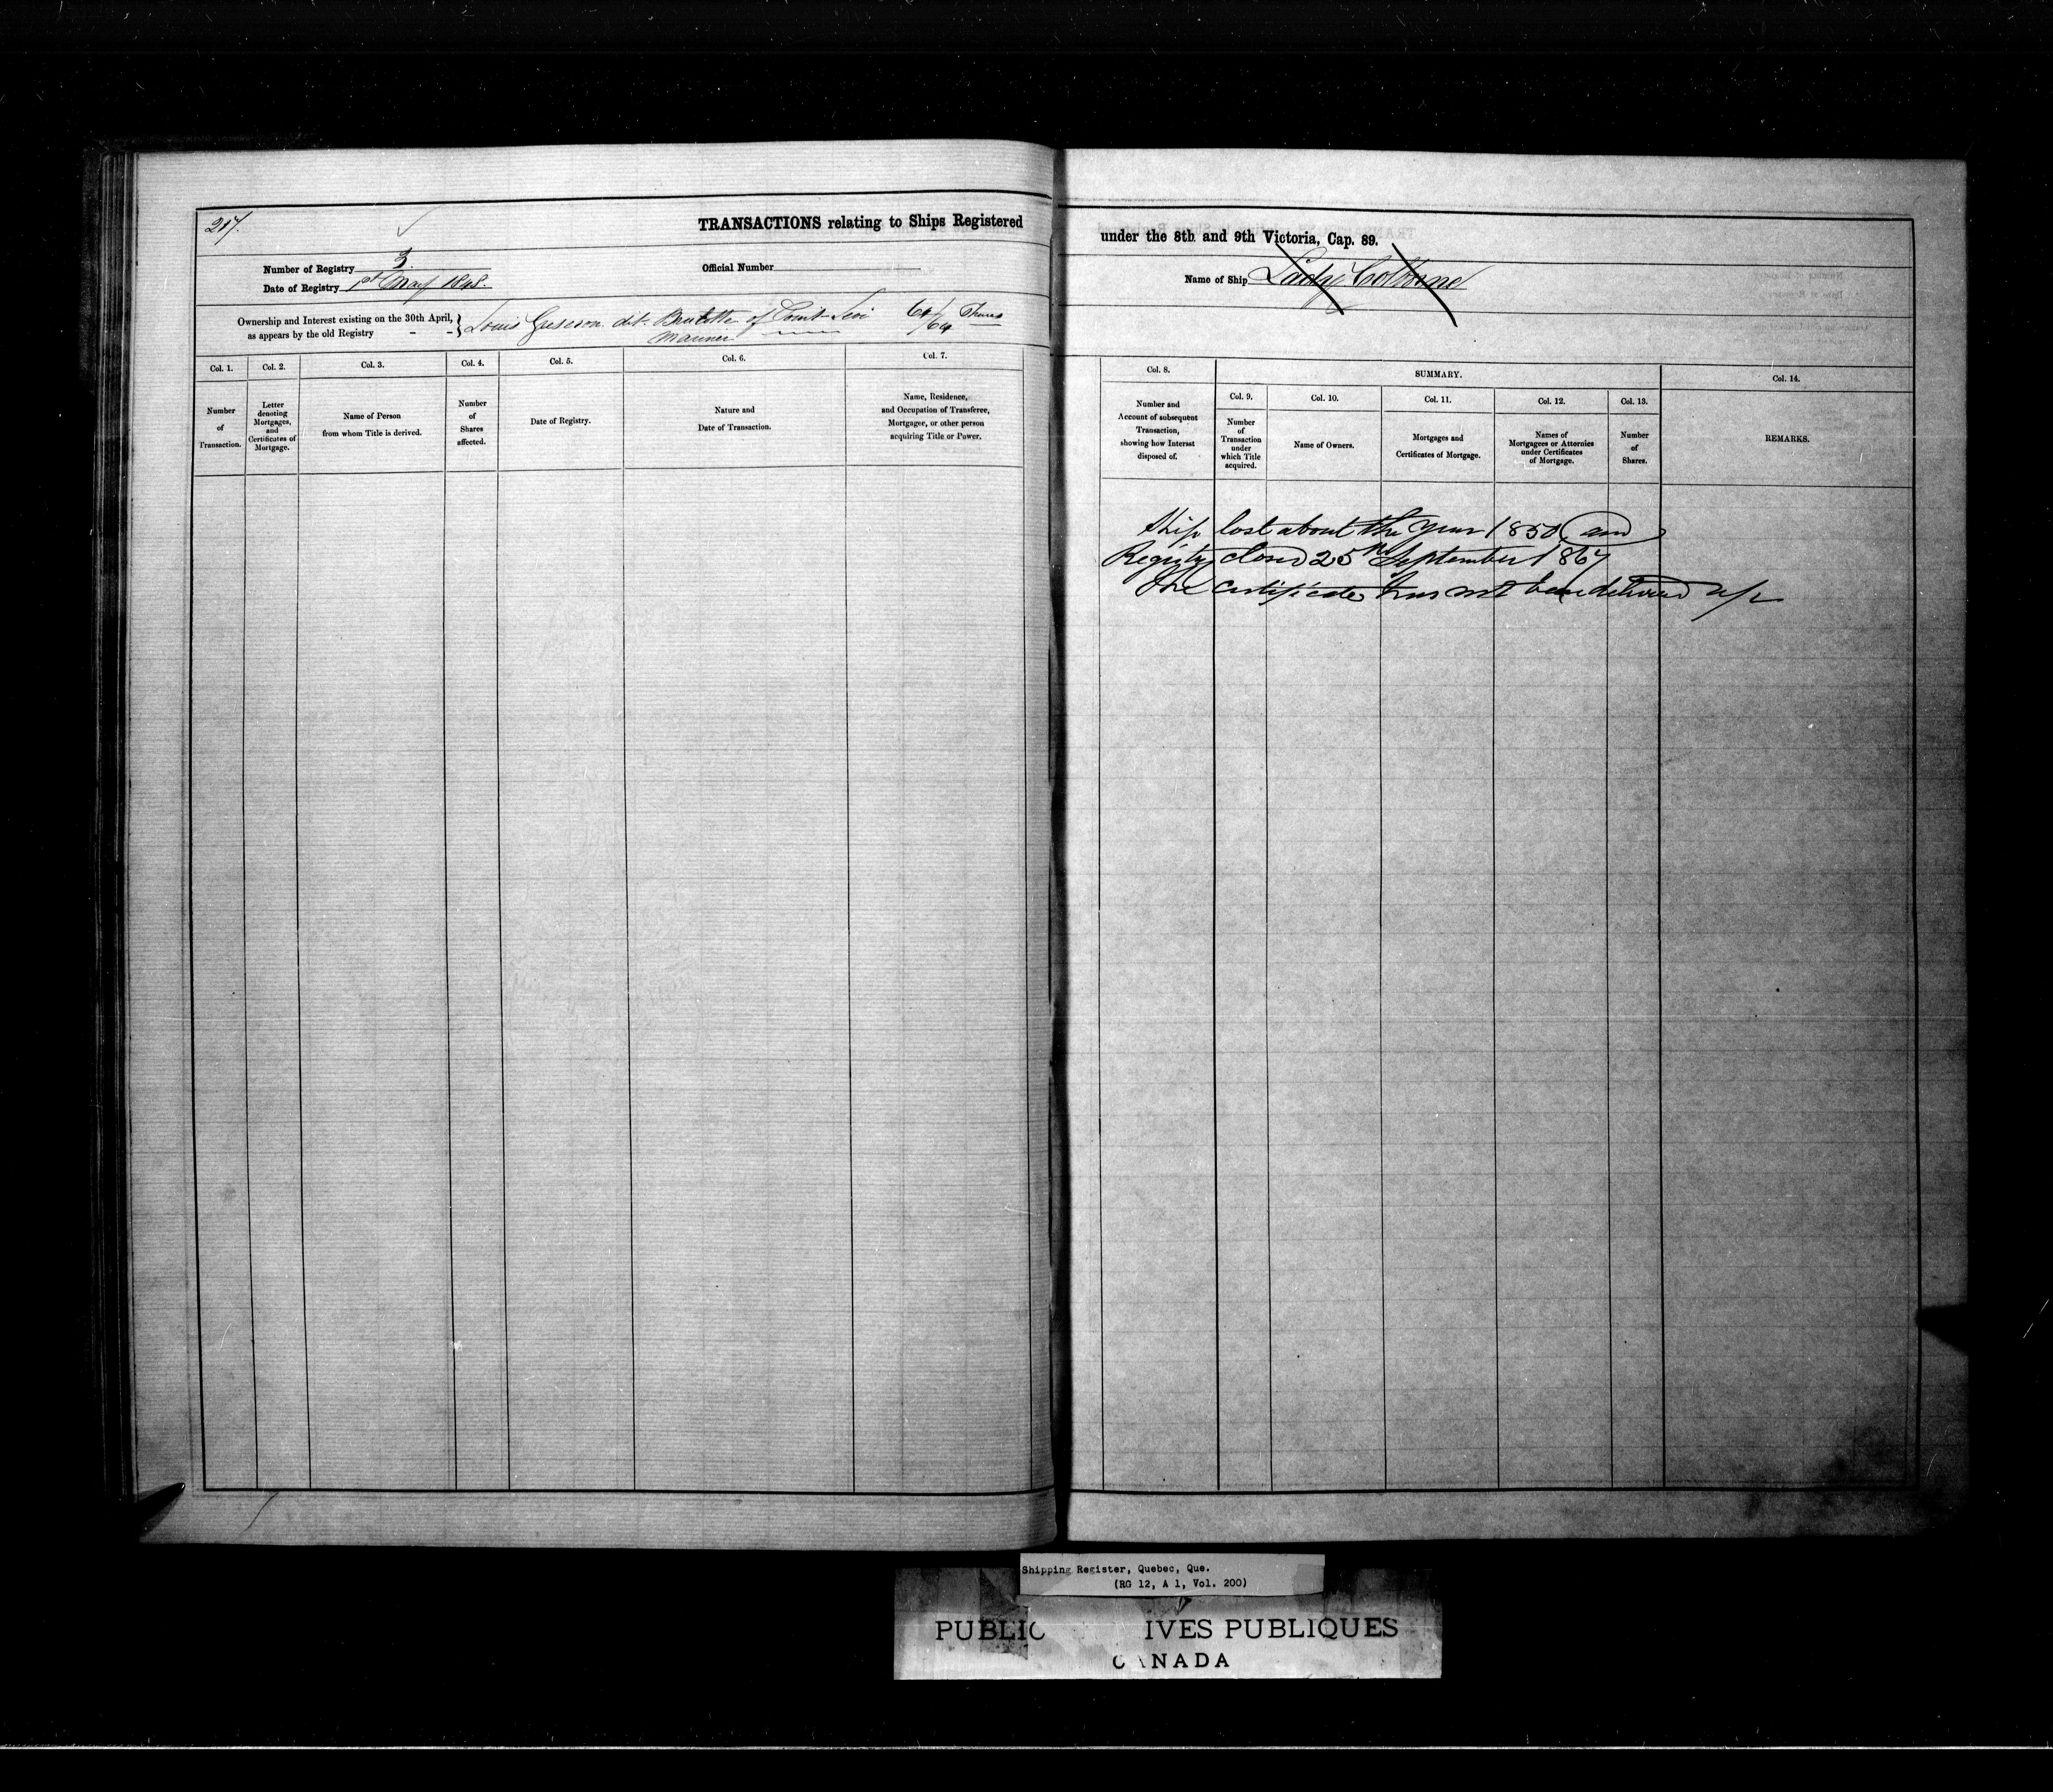 217.
TRANSACTIONS relating to Ships Registered
Number of Registry 3.
Official Number
Date of Registry 1st May 1848.
Ownership and Interest existing on the 30th April,
as appears by the old Registry - -
Louis dit of Point Levi 64/64 Shares
Mariner
Col. 1.
Number
of
Transaction.
Col. 2.
Letter
denoting
Mortgages,
and
Certificates of
Mortgage.
Col. 3.
Name of Person
from whom Title is derived.
Col. 4.
Number
of
Shares
affected.
Col. 5.
Date of Registry.
Col. 6.
Nature and
Date of Transaction.
Col. 7.
Name, Residence,
and Occupation of Transferee,
Mortgagee, or other person
acquiring Title or Power.
under the 8th and 9th Victoria, Cap. 89.
Name of Ship Lady Colborne
Col. 8.
Number and
Account of subsequent
Transaction,
showing how Interest
disposed of.
SUMMARY.
Col. 9.
Number
of
Transaction
under
which Title
acquired.
Col. 10.
Name of Owners.
Col. 11.
Mortgages and
Certificates of Mortgage.
Col. 12.
Names of
Mortgagees or Attornies
under Certificates
of Mortgage.
Col. 13.
Number
of
Shares.
Col. 14.
REMARKS.
Ship lost about the year 1850 and
Registry closed 25th September 1867
The certificate has not been delivered up
Shipping Register, Quebec, Que.
(RG 12, A 1, Vol. 200)
PUBLIC IVES PUBLIQUES
CANADA